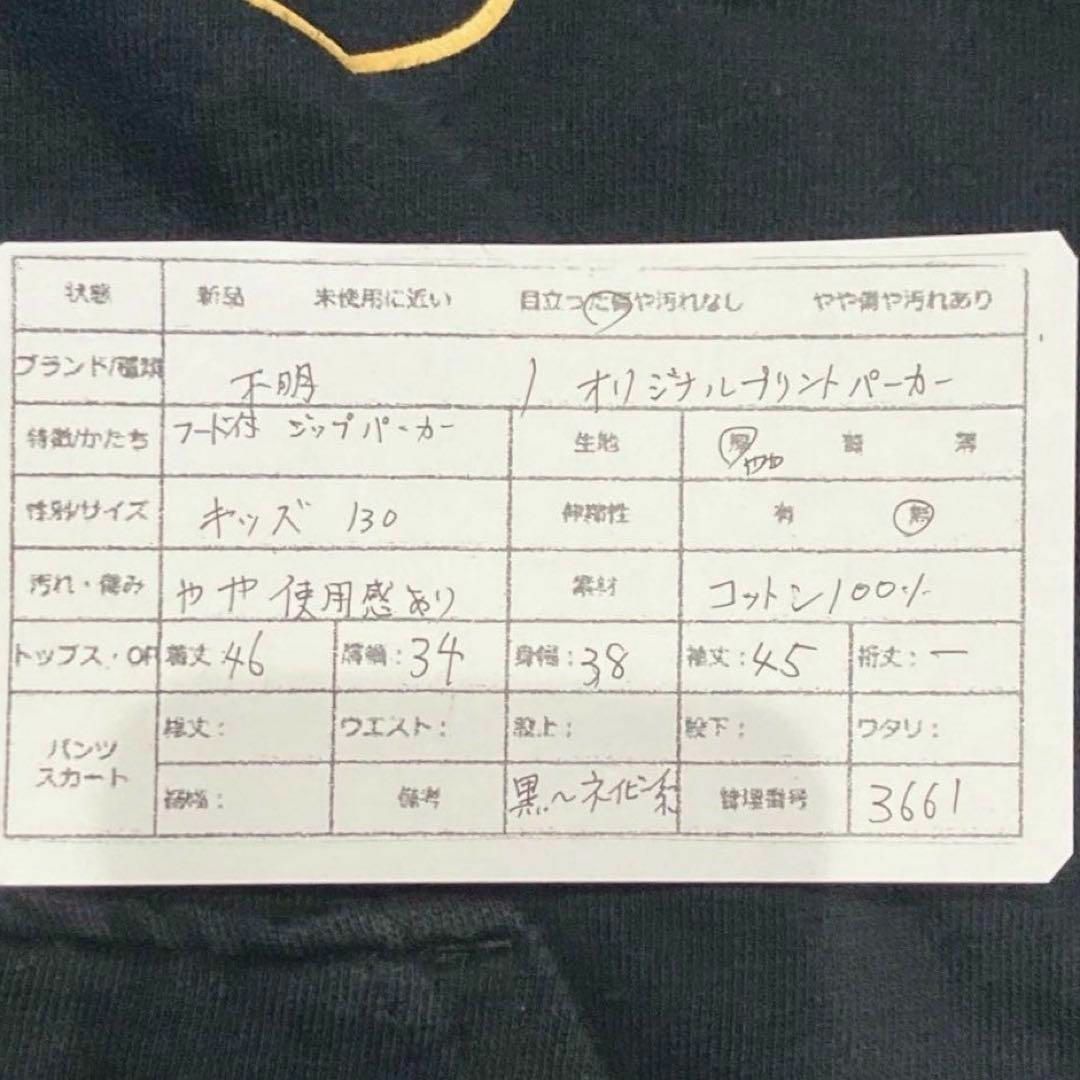 状態 新品 未使用に近い 目立った傷や汚れなし やや傷や汚れあり
ブランド/種類 不明 / オリジナルプリントパーカー
特徴/かたち フード付 ジップパーカー 生地 厚 やや 普 薄
性別/サイズ キッズ 130 伸縮性 有 無
汚れ・傷み やや使用感あり 素材 コットン100%
トップス・OP 着丈:46 肩幅:34 身幅:38 袖丈:45 裄丈:ー
パンツ スカート 総丈: ウエスト: 股上: 股下: ワタリ:
裾幅: 備考 黒〜ネイビー系 管理番号 3661